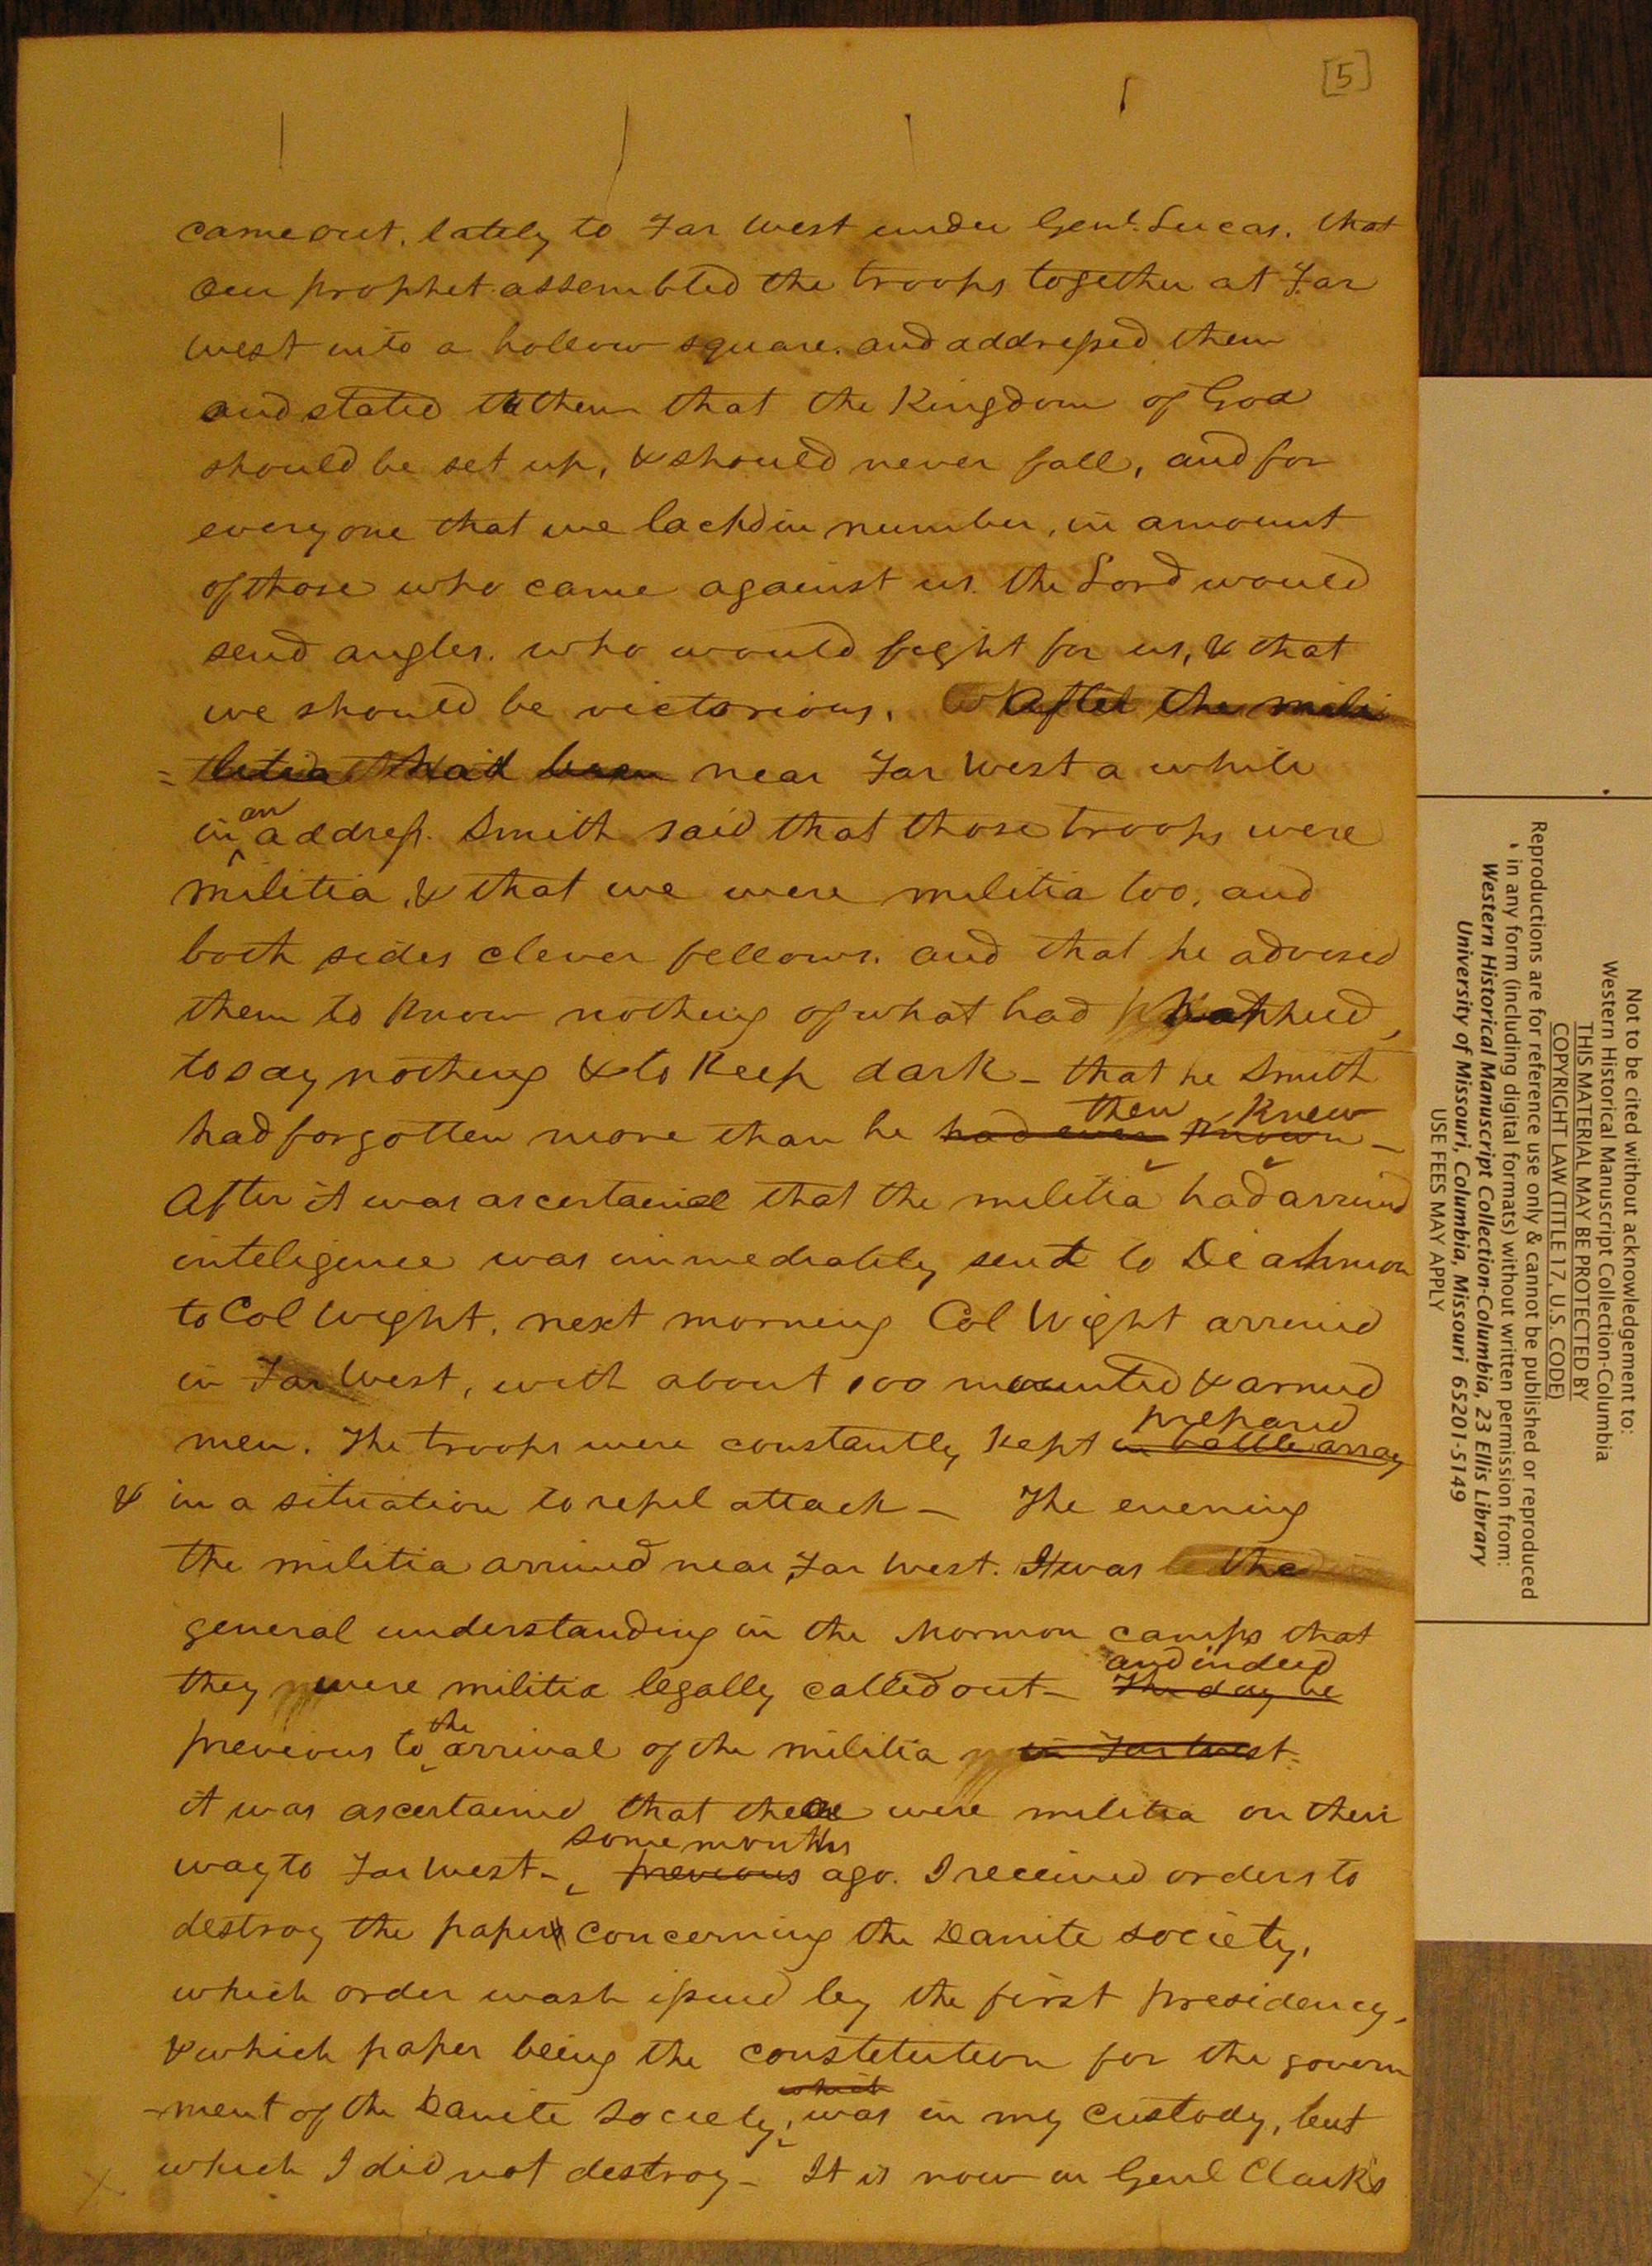 [5]
came out, lately to Far West under Genl. Lucas. that
our prophet assembled the troops together at Far
West into a hollow square. and addressed them
and stated to them that the Kingdom of God
should be set up, & should never fall, and for
every one that we lackd in number, in amount
of those who came against us. the Lord would
send angles. who would feght for us, & that
we should be victorious. After the mili
= litia had been near Far West a while
an
in address. Smith said that those troops were
militia, & that we were militia too, and
both sides clever fellows. and that he advised
them to Know nothing of what had happned,
to say nothing & to Keep dark - that he Smith
then Knew
had forgotten more than he had ever known -
After it was ascertained that the militia had arrived
inteligence was immediately sent to Diahmon
to Col Wight, next morning Col Wight arrived
in Far West, with about 100 mounted & armed
prepared
men. The troops were constantly Kept in battle array
& in a situation to repel attack - The evening
the militia arrived near Far West. It was the
general understanding in the Mormon camps that
and indeed
they were militia legally called out - The day be
the
previous to arrival of the militia in Far West -
it was ascertained that there were militia on their
some months
way to Far West - previous ago. I received orders to
destroy the paper concerning the Danite society,
which order wash issued by the first presidency,
& which paper being the constetution for the govern
which
-ment of the Danite Society, was in my custody, but
which I did not destroy - It is now in Genl Clarks
Not to be cited without acknowledgement to:
Western Historical Manuscript Collection-Columbia
THIS MATERIAL MAY BE PROTECTED BY
COPYRIGHT LAW (TITLE 17, U.S. CODE)
Reproductions are for reference use only & cannot be published or reproduced
in any form (including digital formats) without written permission from:
Western Historical Manuscript Collection-Columbia, 23 Ellis Library
University of Missouri, Columbia, Missouri 65201-5149
USE FEES MAY APPLY